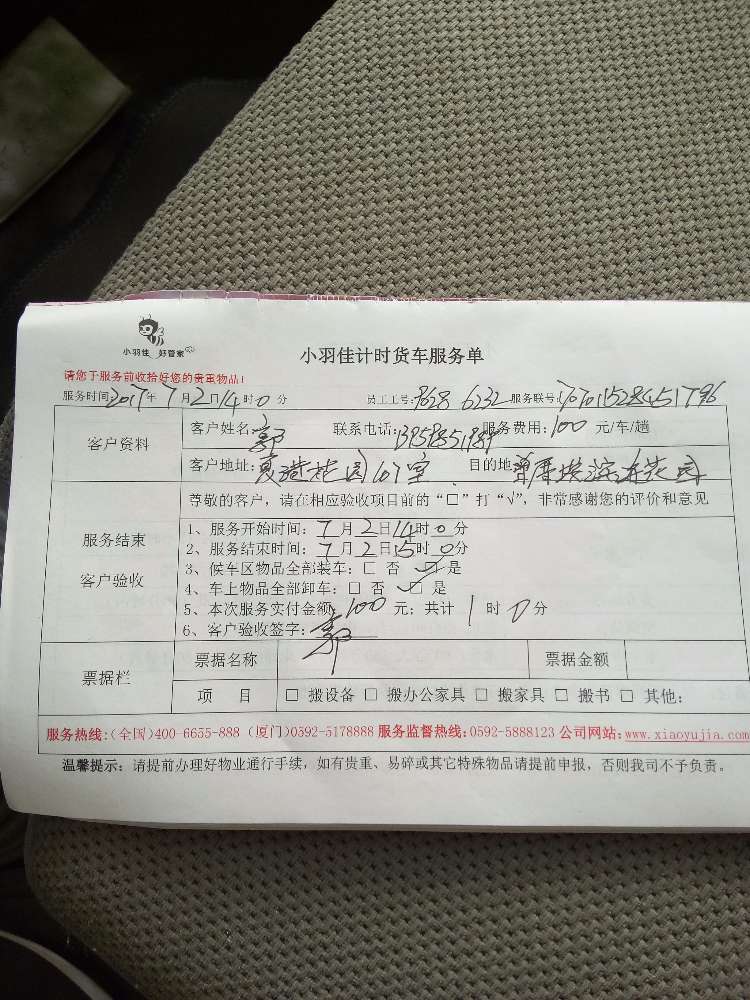 小羽佳 好管家
小羽佳计时货车服务单
请您于服务前收拾好您的贵重物品!
服务时间2017年7月2日14时0分 员工工号:9628 6232 服务联号:
客户资料
客户姓名:郭 联系电话: 服务费用:100元/车/趟
客户地址: 花园107室 目的地: 花园
尊敬的客户,请在相应验收项目前的“□”打“√”,非常感谢您的评价和意见
服务结束
客户验收
1、服务开始时间:7月2日14时0分
2、服务结束时间:7月2日15时0分
3、候车区物品全部装车:□ 否 ☑ 是
4、车上物品全部卸车:□ 否 ☑ 是
5、本次服务实付金额:100元;共计1时0分
6、客户验收签字:郭
票据栏
票据名称 票据金额
项 目 □ 搬设备 □ 搬办公家具 □ 搬家具 □ 搬书 □ 其他:
服务热线:(全国)400-6655-888 (厦门)0592-5178888 服务监督热线:0592-5888123 公司网站:www.xiaoyujia.com
温馨提示:请提前办理好物业通行手续,如有贵重、易碎或其它特殊物品请提前申报,否则我司不予负责。